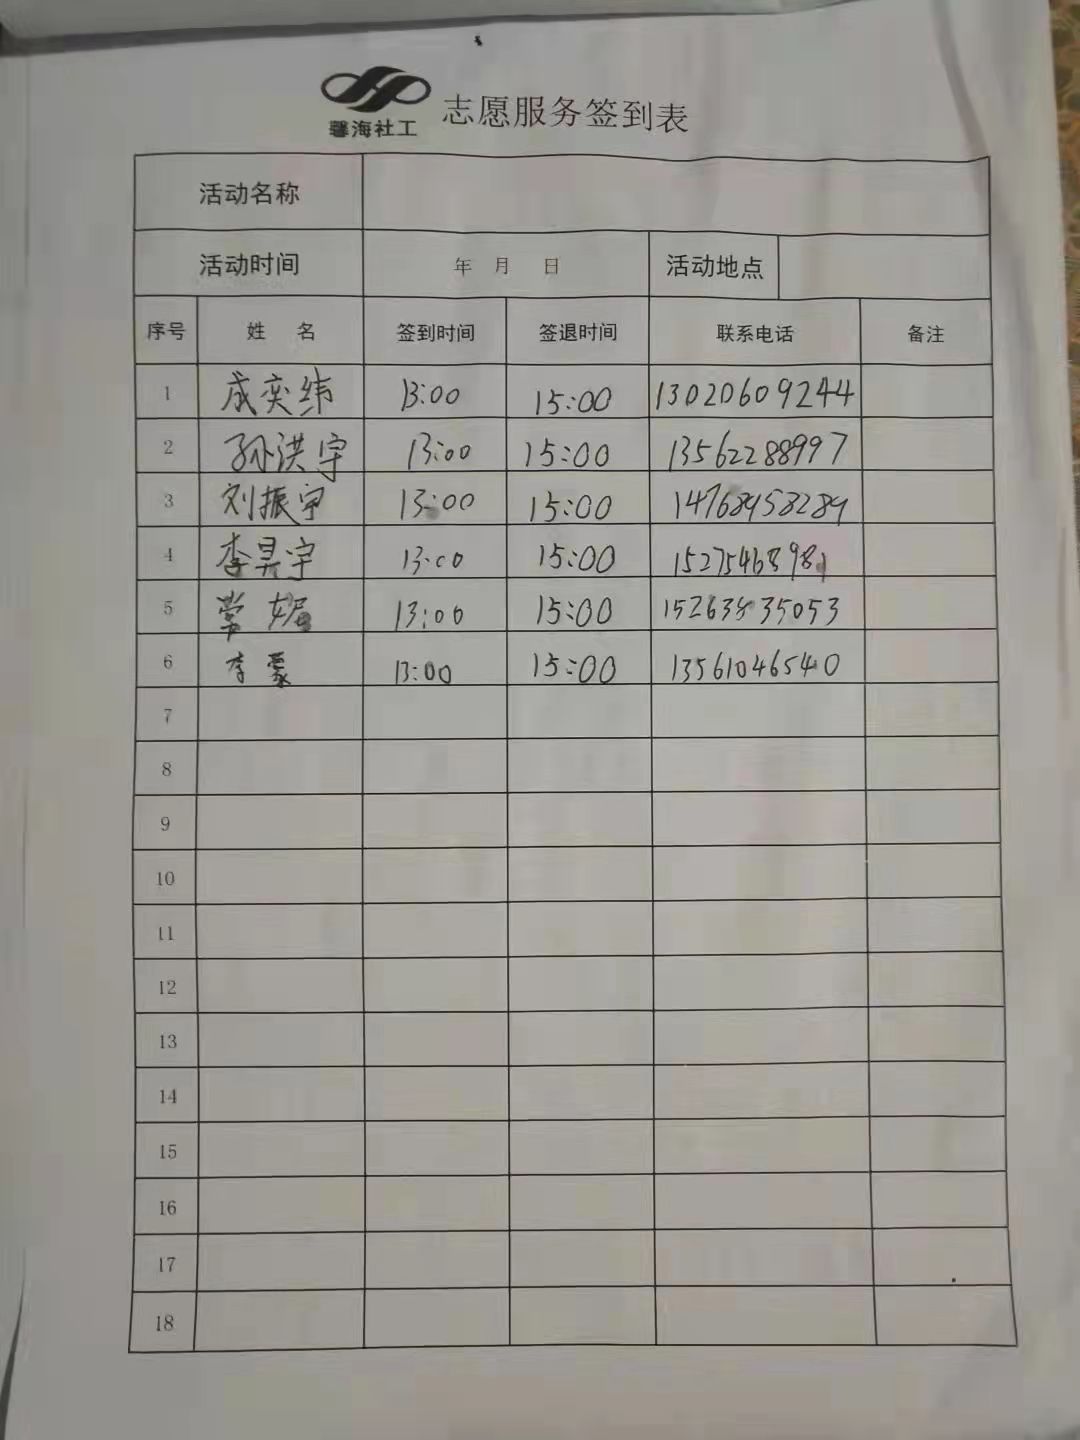 馨海社工
志愿服务签到表
活动名称
活动时间 年 月 日 活动地点
序号 姓 名 签到时间 签退时间 联系电话 备注
1 成奕纬 13:00 15:00 13020609244
2 孙洪宇 13:00 15:00 13562288997
3 刘振宇 13:00 15:00 14768958289
4 李昊宇 13:00 15:00 15275468981
5 13:00 15:00
6 李蒙 13:00 15:00 13561046540
7
8
9
10
11
12
13
14
15
16
17
18